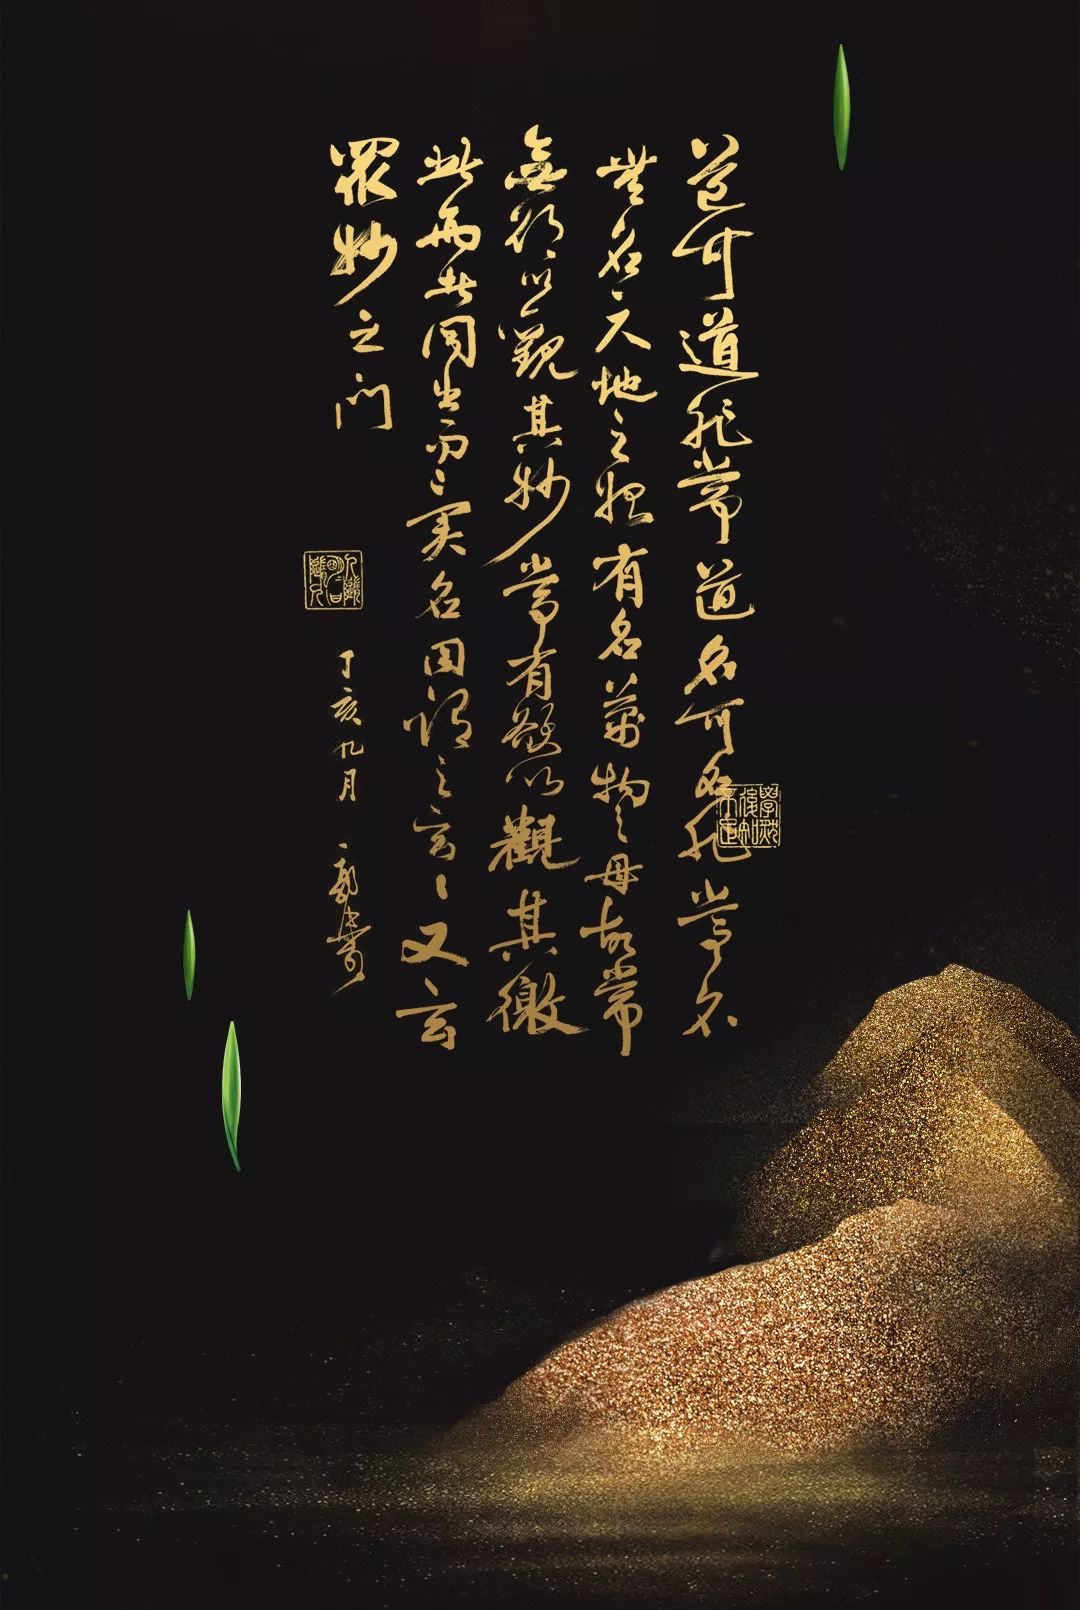 道可道非常道名可名非常名
無名天地之始有名萬物之母故常
無欲以觀其妙常有欲以觀其徼
此兩者同出而異名同謂之玄之又玄
眾妙之門
丁亥九月 郭
學然後知不足